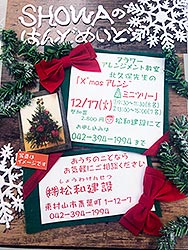 SHOWAの
はんどめいど
フラワー
アレンジメント教室
北久保先生の
「X'mas アレンジ
ミニツリー」
12/17(火)
参加費
2,800円
松和建設にて
お申し込みは
042-394-1994 まで
写真は
イメージです
おうちのことなら
お気軽にご相談ください
しょうわけんせつ
㈱松和建設
東村山市青葉町1-12-7
042-394-1994